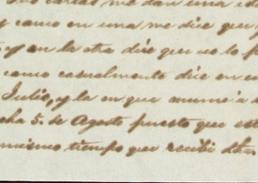 cartas me dan una
y como en una me dice que
y en la otra dice que no lo
como casualmente dice en
Julio, y la en que
5 de Agosto puesto que
mismo tiempo que recibi